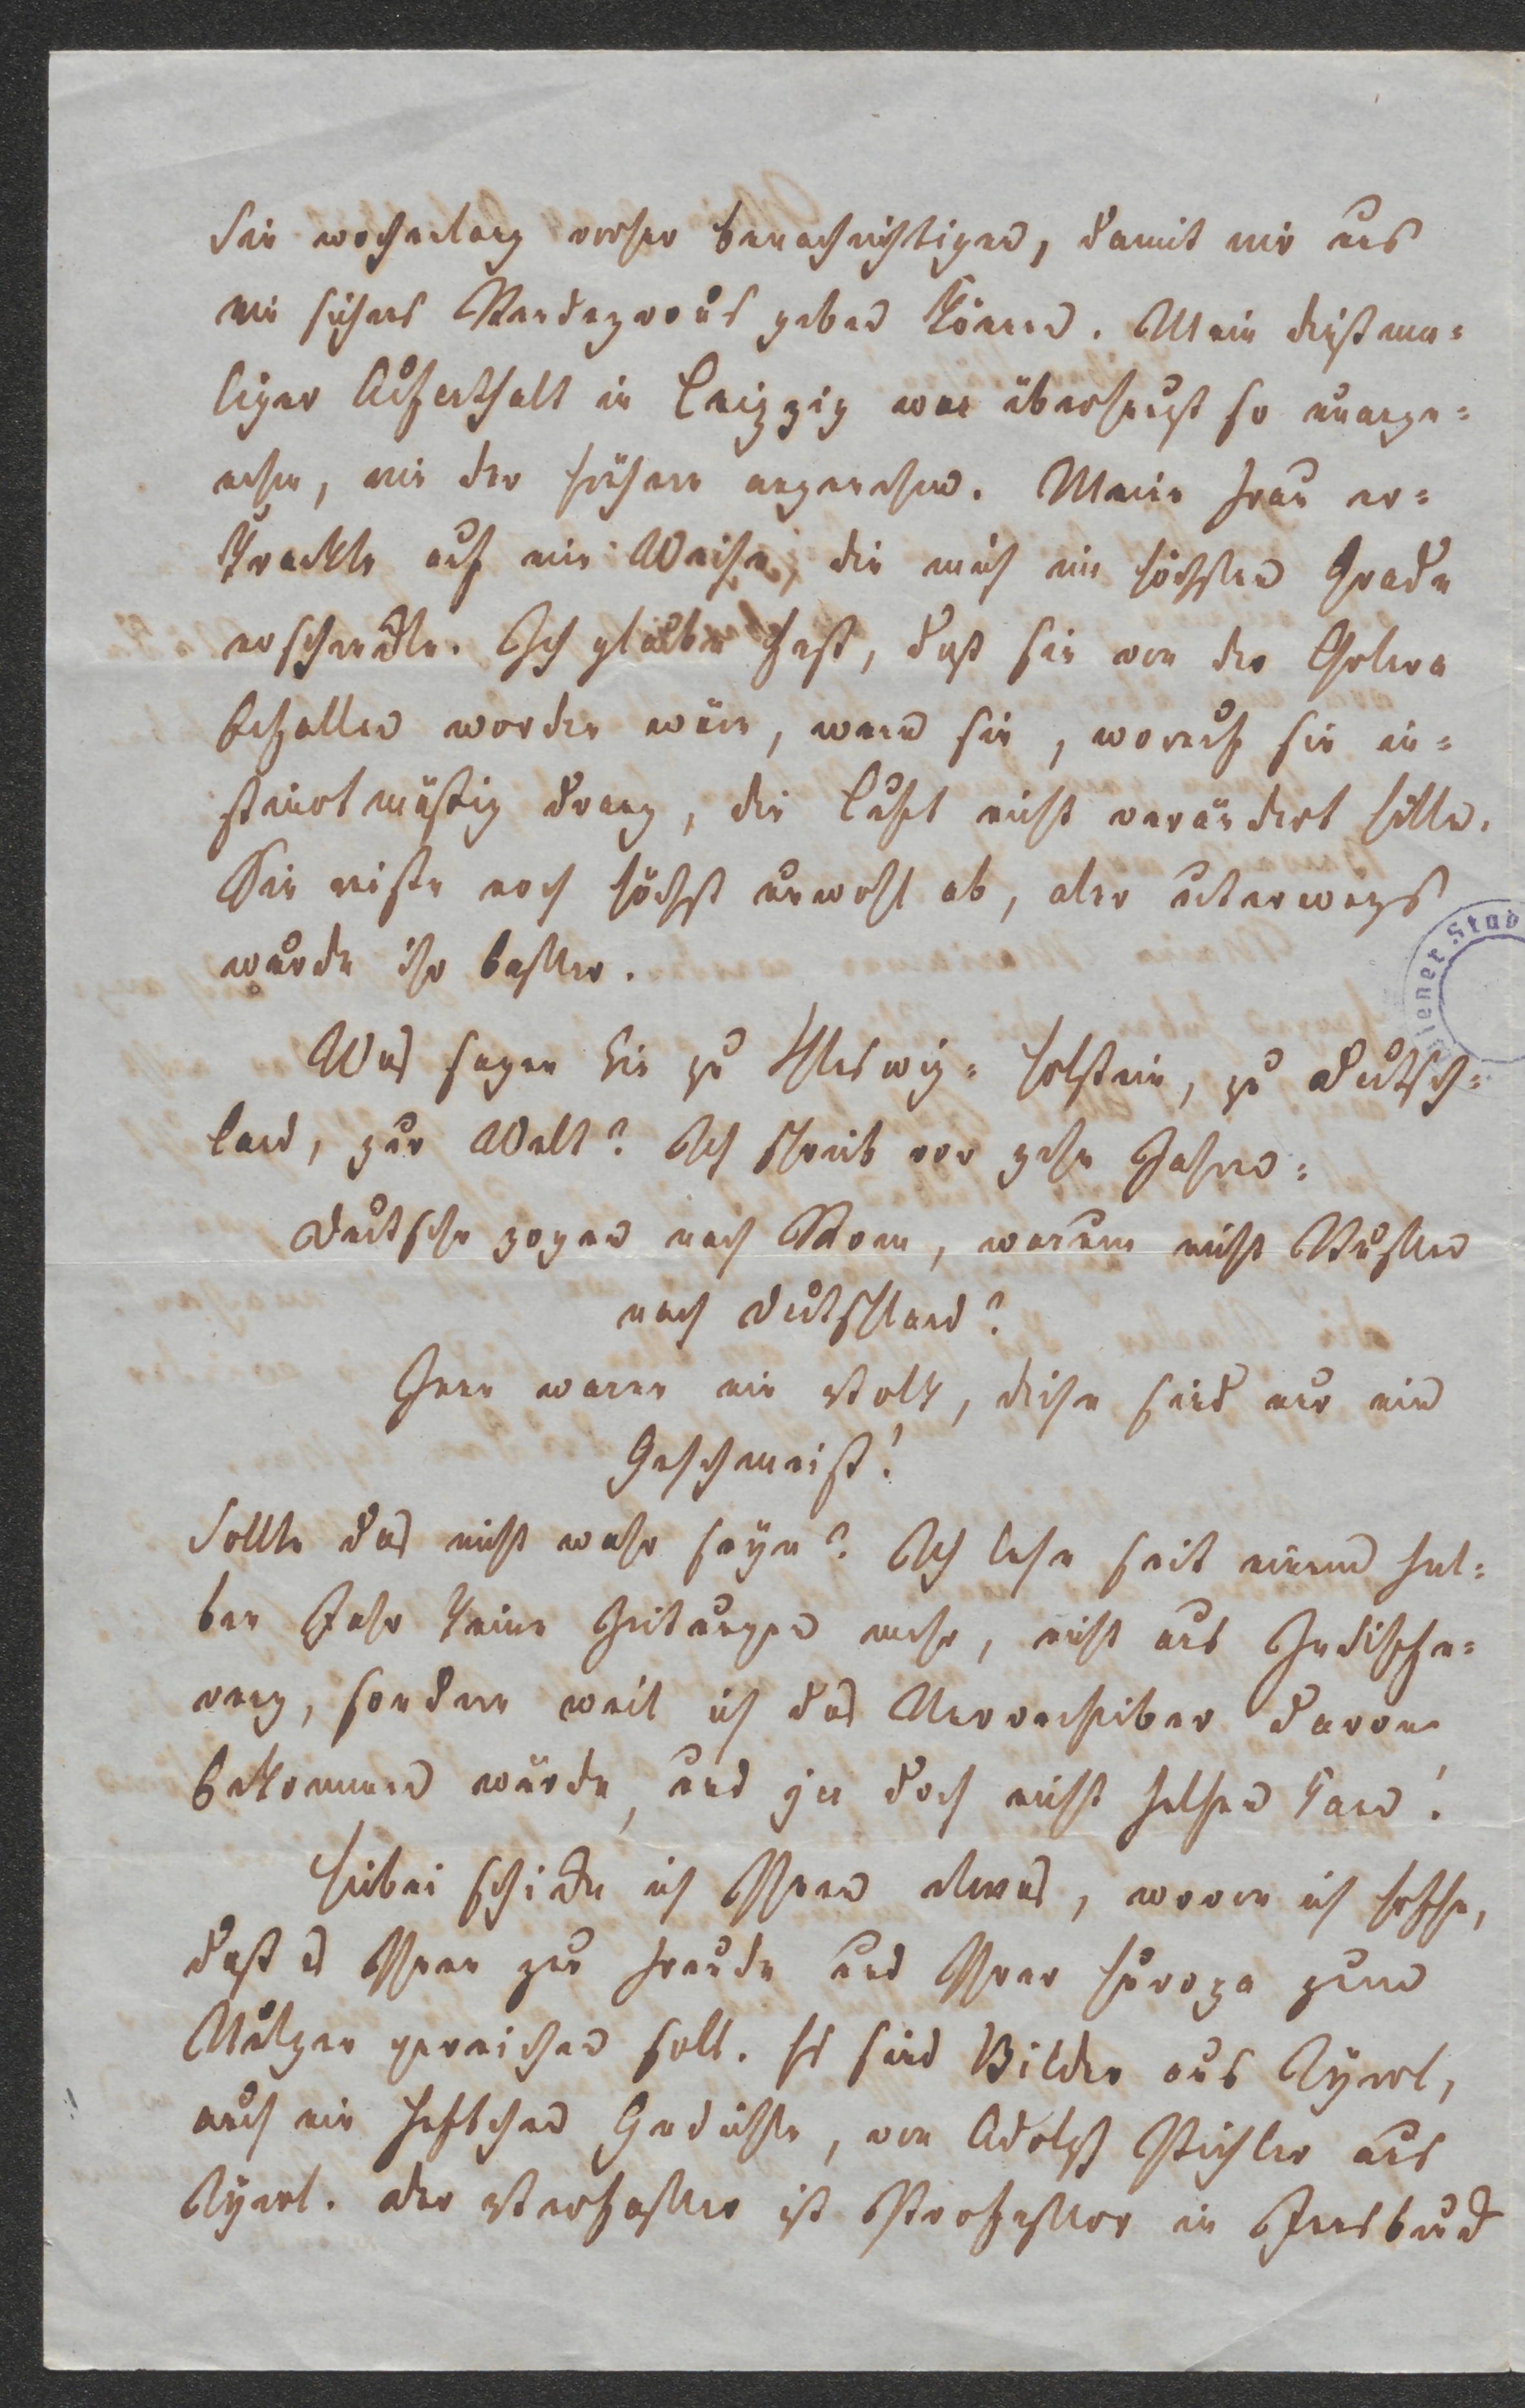 Sie wochenlang vorher benachrichtigen, damit wir uns
ein sichres Rendezvous geben können. Mein dießma-
liger Aufenthalt in Leipzig war überhaupt so unange-
nehm, wie der frühere angenehm. Meine Frau er-
krankte auf eine Weise, die mich im höchsten Grade
erschreckte. Ich glaube fast, daß sie von der Cholera
befallen worden wäre, wenn sie, worauf sie in-
stinctmäßig drang, die Luft nicht verändert hätte.
Sie reiste noch höchst unwohl ab, aber unterwegs
wurde ihr besser.
Was sagen Sie zu Schleswig-Holstein, zu Deutsch-
land, zur Welt? Ich schrieb vor zehn Jahren:
Deutsche zogen nach Rom, warum nicht Russen
nach Deutschland?
Jene waren ein Volk, diese sind nur ein
Geschmeiß!
Sollte das nicht wahr seyn? Ich lese seit einem hal-
ben Jahr keine Zeitungen mehr, nicht aus Indiffe-
renz, sondern weil ich das Nervenfieber davon
bekommen würde, und ja doch nicht helfen kann!
Hiebei schicke ich Ihnen etwas, wovon ich hoffe,
daß es Ihnen zur Freude und Ihrer Europa zum
Nutzen gereichen soll. Es sind Bilder aus Tyrol,
auch ein Heftchen Gedichte, von Adolph Pichler aus
Tyrol. Der Verfasser ist Professor in Insbruck
Wiener Stad